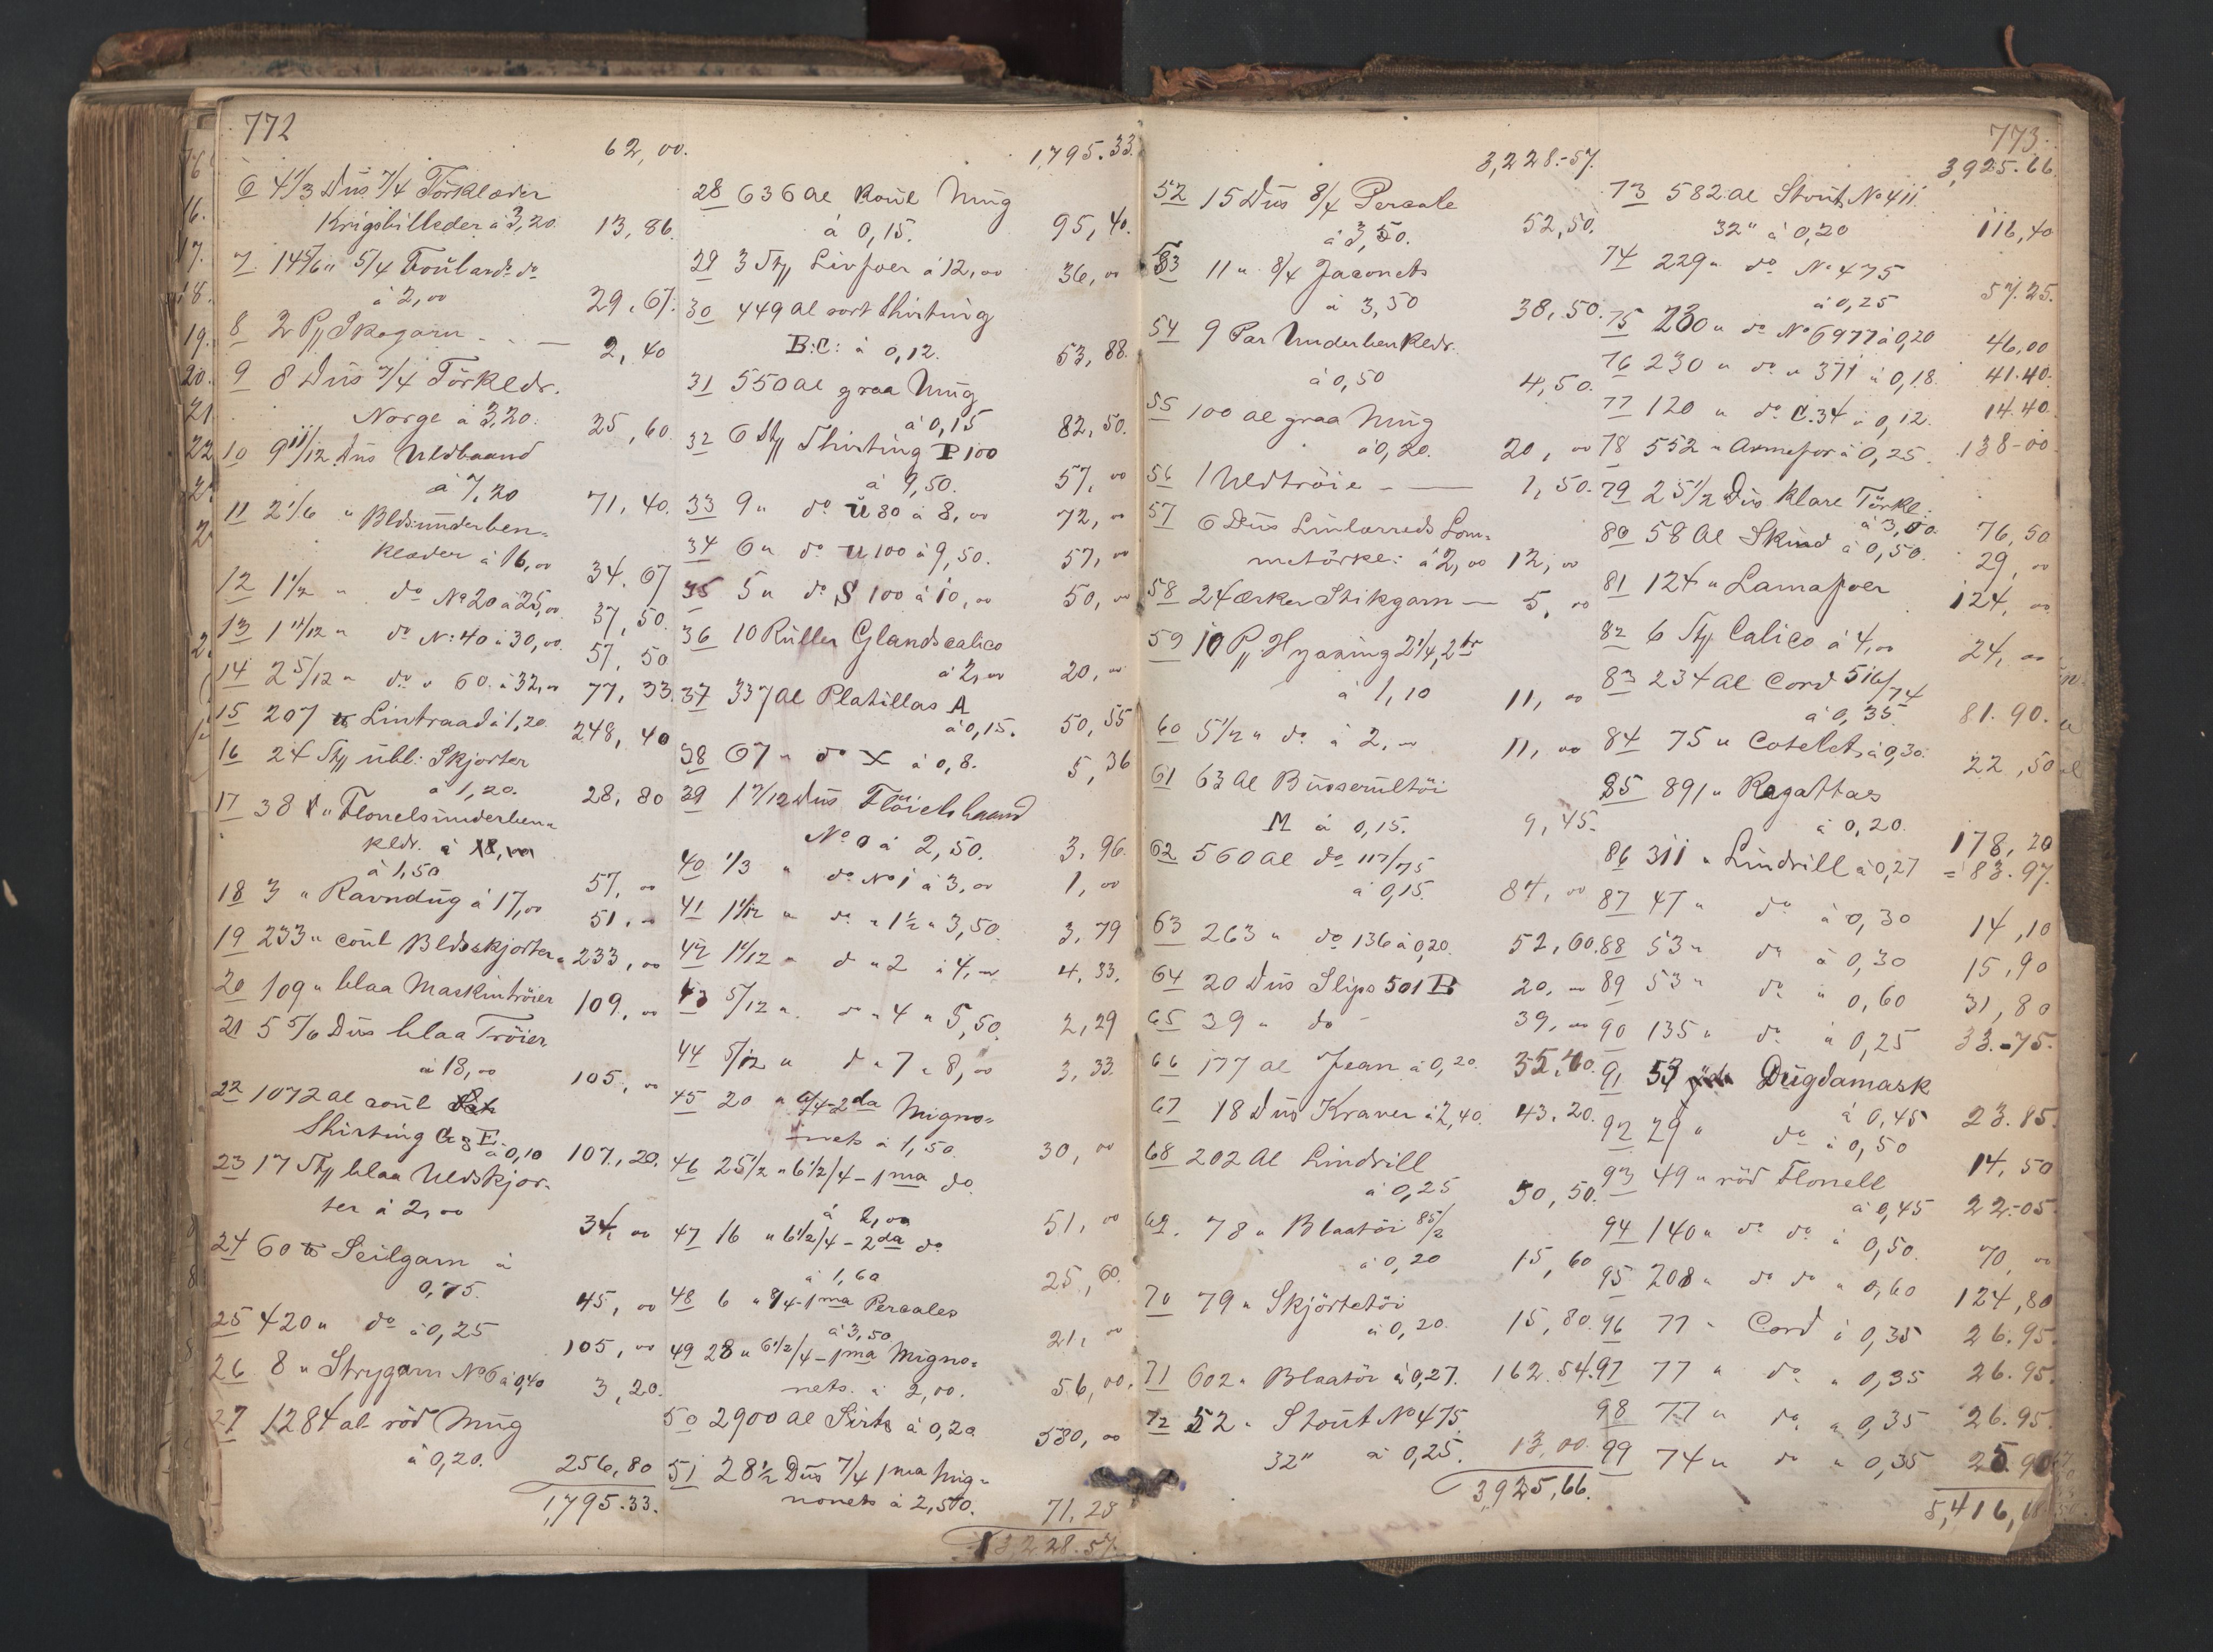 772
62,00.
6 4 1/3 Dus 7/4 Törklæder
Krigsbilleder à 3,20. 13,86.
7 14 5/6 " 5/4 Foulard. do
à 2,00 29,67.
8 2 P Skogarn - - 2,40
9 8 Dus 7/4 Törkldr.
Norge à 3,20. 25,60.
10 9 11/12 Dus Uldbaand
à 7,20 71,40.
11 2 1/6 " Bldsunderben=
klæder à 16,00 34,67
12 1 1/2 " do No 20 à 25,00 37,50.
13 1 11/12 " do N: 40 à 30,00. 57,50
14 2 5/12 " do " 60. à 32,00 77,33.
15 207 lb Lintraad à 1,20. 248,40
16 24 St ubl: Skjorter
à 1,20. 28,80
17 38 " Flonelsunderben=
kldr.
à 1,50 57,00
18 3 " Ravndug à 17,00 51,00
19 233 " coul Bldsskjorter " 233,00
20 109 " blaa Maskintröier 109,00
21 5 5/6 Dus blaa Tröier
à 18,00 105,00
22 1072 al coul
Shirting G & E à 0,10 107,20.
23 17 St blaa Uldskjor=
ter à 2,00 34,00
24 60 lb Seilgarn à
0,75. 45,00
25 420 " do à 0,25 105,00
26 8 " Strygarn No 6 à 0,40 3,20.
27 1284 al röd Nug
à 0,20. 256,80
1,795.33.
1,795.33.
28 636 al Koul Nug
à 0,15. 95,40.
29 3 St Livfoer à 12,00 36,00
30 449 al sort Shirting
B:C: à 0,12. 53,88.
31 550 al graa Nug
à 0,15 82,50.
32 6 St Shirting P 100
à 9,50. 57,00
33 9 " do U 80 à 8,00 72,00
34 6 " do U 100 à 9,50. 57,00
35 5 " do S 100 à 10,00 50,00
36 10 Ruller Glandscalico
à 2,00 20,00
37 337 al Platillas A
à 0,15. 50,55
38 67 " do X à 0,8. 5,36
39 1 7/12 Dus Flöielsbaand
No 0 à 2,50. 3,96.
40 1/3 " do No 1 à 3,00 1,00
41 1 1/12 " do " 1 1/2 " 3,50. 3,79
42 1 1/12 " d " 2 à 4,00 4,33.
43 5/12 " do " 4 " 5,50. 2,29
44 5/12 " d " 7 " 8,00 3,33.
45 20 " 6/4 - 2da Migno=
nets à 1,50. 30,00
46 25 1/2 " 6 1/2/4 - 1ma do
à 2,00 51,00
47 16 " 6 1/2/4 - 2da do
à 1,60 25,60.
48 6 " 8/4 - 1ma Percales
à 3,50 21,00
49 28 " 6 1/2/4 - 1ma Migno=
nets. à 2,00. 56,00.
50 2900 al Sirts à 0,20 580,00
51 28 1/2 Dus 7/4 1ma Mig=
nonets à 2,50. 71,28
3,228.57.
773.
3,228.-57.
52 15 Dus 8/4 Percale
à 3,50. 52,50.
53 11 " 8/4 Jaconets
à 3,50 38,50.
54 9 Par Underbenkldr.
à 0,50 4,50.
55 100 al graa Nug
à 0,20. 20,00
56 1 Uldtröie - — 1,50.
57 6 Dus Linlærreds Lom=
metörkl: à 2,00 12,00
58 24 Æsker Stikgarn — 5,00
59 10 P Hyssing 2 1/4, 2 tr
à 1,10 11,00
60 5 1/2 " do à 2,00 11,00
61 63 al Buserultöi
M à 0,15. 9,45.
62 560 al do 117/75
à 0,15. 84,00
63 263 " do 136 à 0,20. 52,60.
64 20 Dus Slips 501 B 20,00
65 39 " do - 39,00
66 177 al Jean à 0,20. 35,40.
67 18 Dus Kraver à 2,40. 43,20.
68 202 al Lindrill
à 0,25 50,50.
69. 78 " Blaatöi 85/2
à 0,20 15,60
70 79 " Skjörtetöi
à 0,20. 15,80.
71 602 " Blaatöi à 0,27. 162.54.
72 52 " Stout No 475
32" à 0,25. 13,00.
3,925,66.
3,925.66.
73 582 al Stout No 411.
32" à 0,20 116,40
74 229 " do No 475
à 0,25 57.25.
75 230 " do No 6977 à 0,20 46,00
76 230 " do " 371 à 0,18. 41.40.
77 120 " do C.34 à 0,12. 14.40.
78 552 " Ærmefor à 0,25. 138-00
79 25 1/2 Dus klare Törkl:
à 3,00. 76,50
80 58 al Skind à 0,50. 29,00
81 124 " Lamafoer 124,00
82 6 St Calico à 4,00 24,00
83 234 al Cord 516/74
à 0,35. 81.90.
84 75 " Cotelets à 0,30. 22,50
85 891 " Regattas
à 0,20. 178,20
86 311 " Lindrill à 0,27 = 83.97.
87 47 " do à 0,30 14,10
88 53 " do à 0,30 15,90
89 53 " do " 0,60 31,80
90 135 " do à 0,25 33.-75.
91 53 Dugdamask
à 0,45 23.85.
92 29 " do à 0,50 14,50
93 49 " röd Flonell
à 0,45 22-05.
94 140 " do do à 0,50. 70,00
95 208 " do do " 0,60 124,80
96 77 " Cord à 0,35 26.95.
97 77 " do " 0,35 26.95.
98 77 " do " 0,35 26.95.
99 74 " do " 0,35 25.90